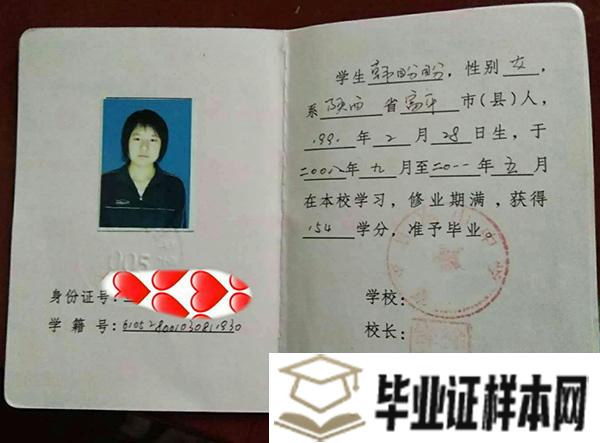 身份证号:
学 籍 号: 6105280010308 11930
学生韩盼盼, 性别 女,
系 陕西 省 富平 市(县)人,
199 年 2 月 28 日生, 于
二00八年 九 月至二0一一年 五 月
在本校学习, 修业期满, 获得
154 学分, 准予毕业。
学校:
校长:
毕业证样本网